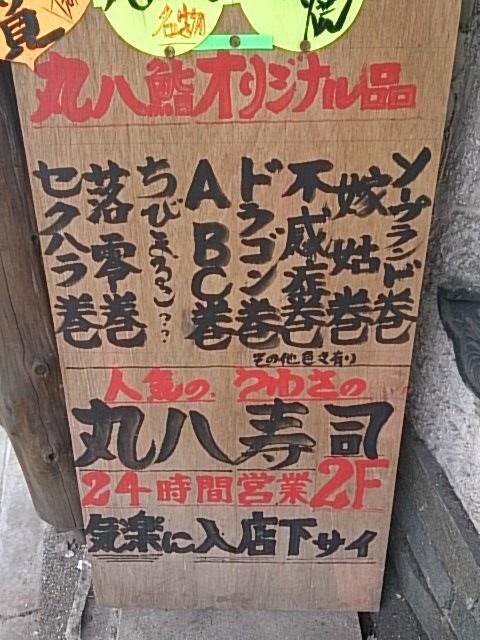 名物
丸八鮨オリジナル品
ソープランド巻
嫁姑巻
不感症巻
ドラゴン巻
ABC巻
ちびまるこ??
落零巻
セクハラ巻
その他色々有り
人気の、うわさの
丸八寿司
24時間営業2F
気楽に入店下サイ